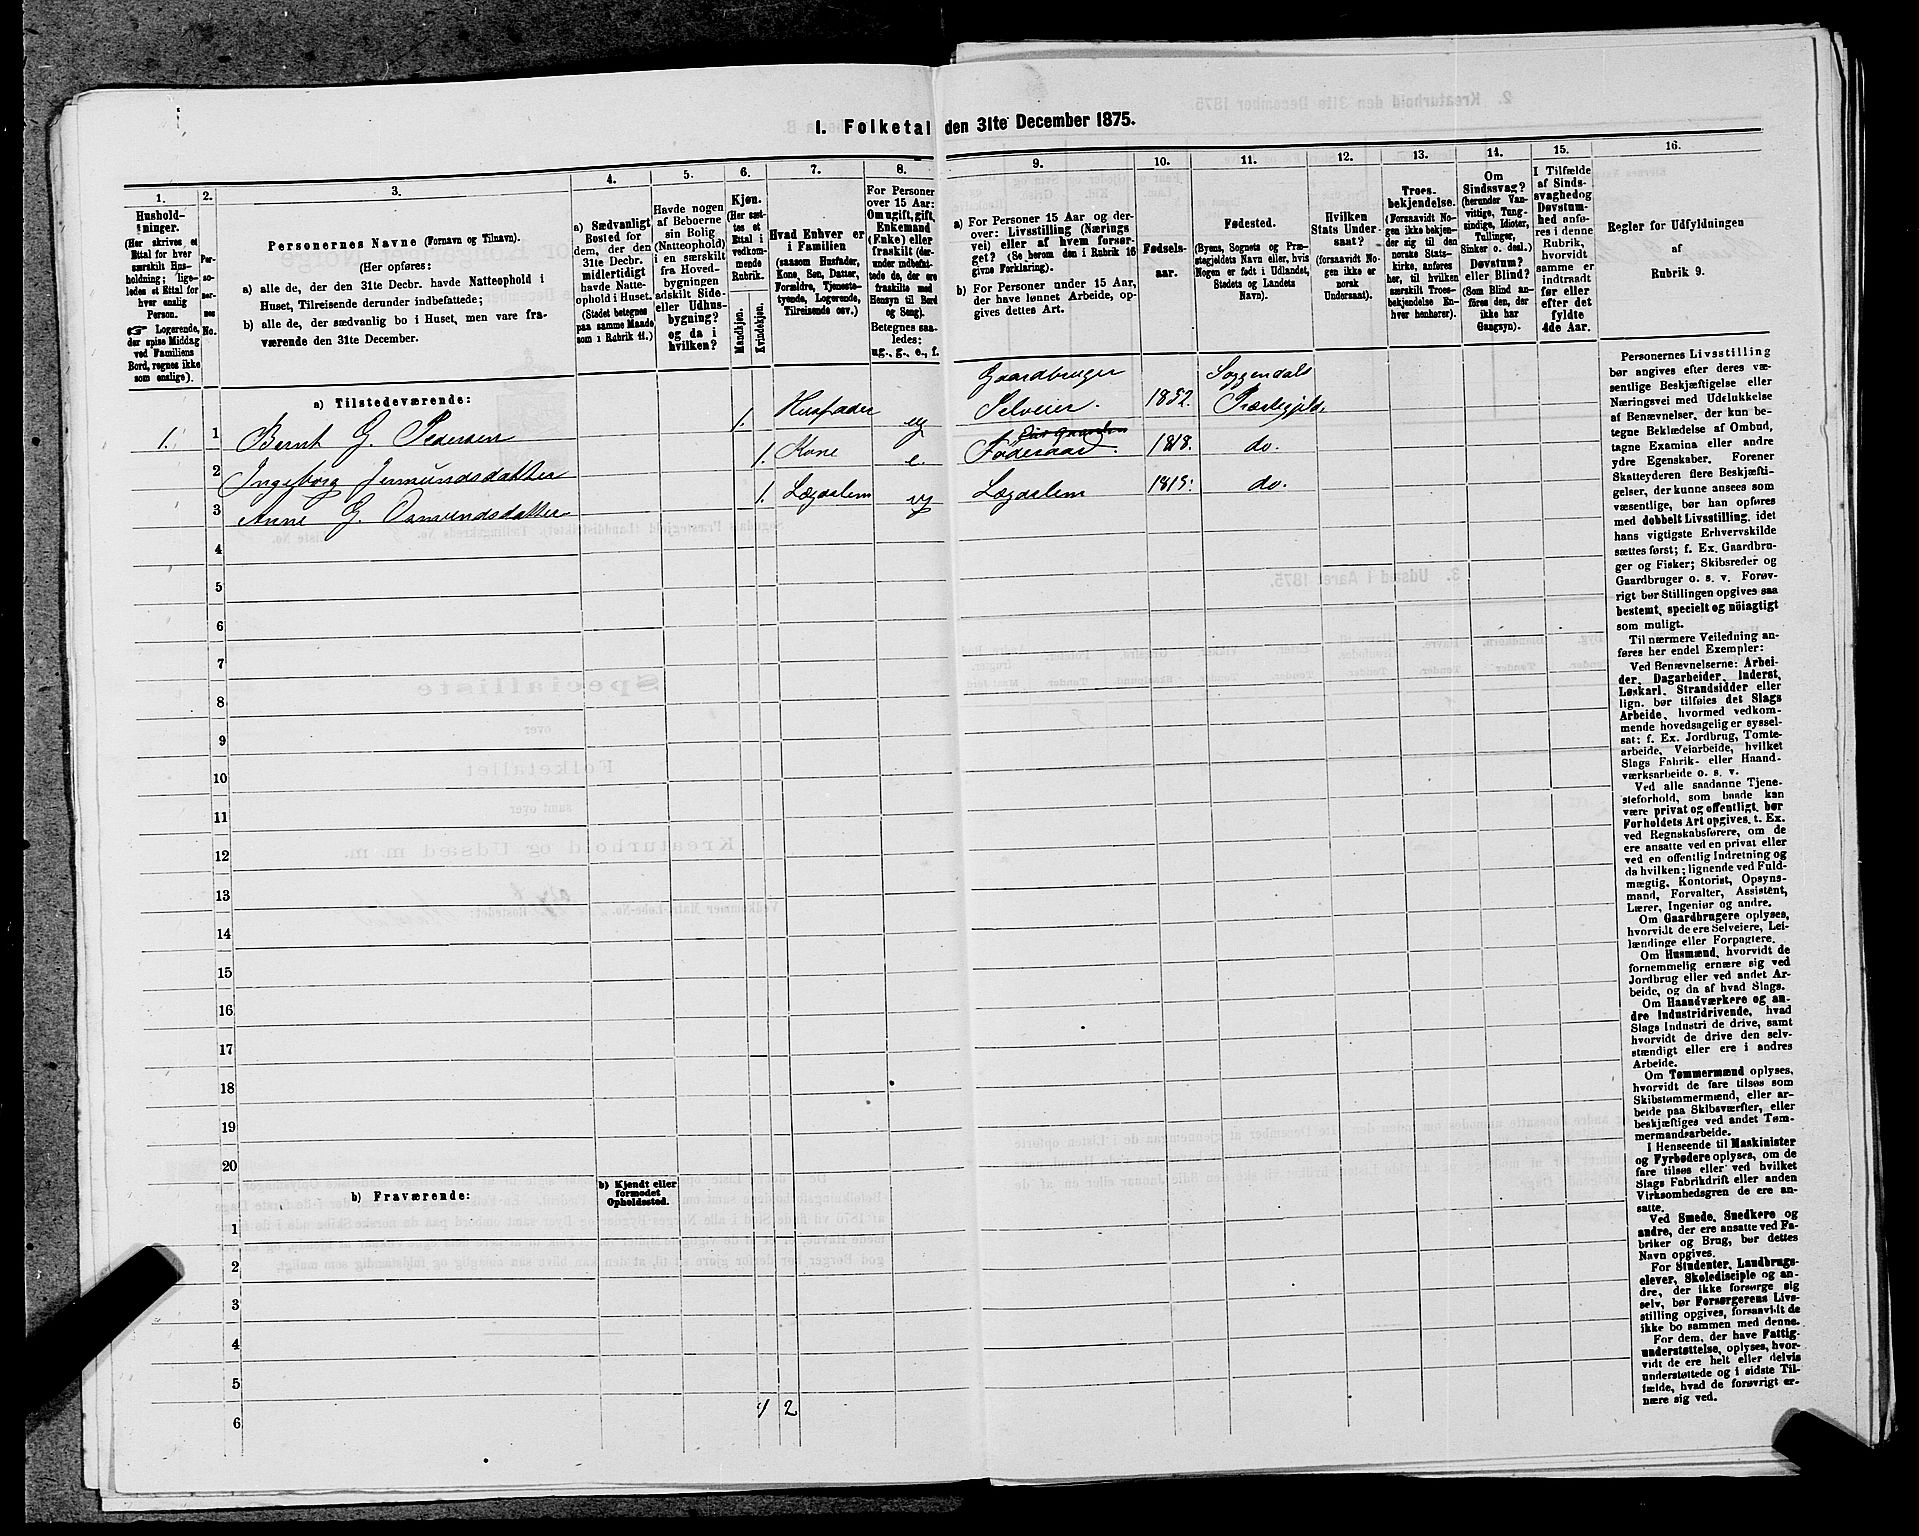 1. Folketal den 31te December 1875.
1.
Hushold-
ninger.
(Her skrives et
Ettal for hver
særskilt Hus-
holdning; lige-
ledes et Ettal for
hver enslig
Person.
☞ Logerende,
der spise Middag
ved Familiens
Bord, regnes ikke
som enslige).
2.
Per-
so-
ner-
nes
No.
3.
Personernes Navne (Fornavn og Tilnavn).
(Her opføres:
a) alle de, der den 31te Decbr. havde Natteophold i
Huset, Tilreisende derunder indbefattede;
b) alle de, der sædvanlig bo i Huset, men vare fra-
værende den 31te December.
4.
a) Sædvanligt
Bosted for
dem, der den
31te Decbr.
midlertidigt
havde Natte-
ophold i Huset.
(Stedet betegnes
paa samme Maade
som i Rubrik 11.)
5.
Havde nogen
af Beboerne
sin Bolig
(Natteophold)
i en særskilt
fra Hoved-
bygningen
adskilt Side-
eller Udhus-
bygning?
og da i
hvilken?
6.
Kjøn.
(Her sæt-
tes et
Ettal i
vedkom-
mende
Rubrik.
Mandkjøn.
Kvindekjøn.
7.
Hvad Enhver er
i Familien
(saasom Husfader,
Kone, Søn, Datter,
Forældre, Tjeneste-
tyende, Logerende,
Tilreisende osv.)
8.
For Personer
over 15 Aar:
Om ugift, gift,
Enkemand
(Enke) eller
fraskilt (der-
under indbefat-
tede de, der ere
fraskilte med
Hensyn til Bord
og Seng).
Betegnes saa-
ledes:
ug., g., e., f.
9.
a) For Personer 15 Aar og der-
over: Livsstilling (Nærings
vei) eller af hvem forsør-
get? (Se herom den i Rubrik 16
givne Forklaring).
b) For Personer under 15 Aar,
der have lønnet Arbeide, op-
gives dettes Art.
10.
Fødsels-
aar.
11.
Fødested.
(Byens, Sognets og Præ-
stegjeldets Navn eller, hvis
Nogen er født i Udlandet,
Stedets og Landets
Navn).
12.
Hvilken
Stats Under-
saat?
(forsaavidt No-
gen ikke er
norsk
Undersaat).
13.
Troes-
bekjendelse.
(Forsaavidt No-
gen ikke bekjen-
der sig til den
norske Stats-
kirke, anføres
her, til hvilken
særskilt Troes-
bekjendelse En-
hver henhører).
14.
Om
Sindssvag?
(herunder Van-
vittige, Tung-
sindige, Idioter,
Tullinger,
Sinker o. desl.)
Døvstum?
eller Blind?
(Som Blind an-
føres den, der
ikke har
Gangsyn).
15.
I Tilfælde
af Sinds-
svaghed og
Døvstum-
hed anfø-
res i denne
Rubrik,
hvorvidt
samme er
indtraadt
før eller
efter det
fyldte
4de Aar.
16.
Regler for Udfyldningen
af
Rubrik 9.
a) Tilstedeværende:
1. 1 Bernt G. Pedersen 1. Husfader ug Gaardbruger Selveier. 1852. Soggendals Præstegjeld.
2 Ingeborg Jermundsdatter 1. Kone e. Føderaad. 1818. do.
3 Anne G. Osmundsdatter 1. Lægdslem ug Lægdslem 1815. do.
4
5
6
7
8
9
10
11
12
13
14
15
16
17
18
19
20
b) Fraværende:
b) Kjendt eller
formodet
Opholdssted.
1
2
3
4
5
6
1 2
Personernes Livsstilling
bør angives efter deres væ-
sentlige Beskjæftigelse eller
Næringsvei med Udelukkelse
af Benævnelser, der kun be-
tegne Beklædelse af Ombud,
tagne Examina eller andre
ydre Egenskaber. Forener
Skatteyderen flere Beskjæfti-
gelser, der kunne ansees som
væsentlige, bør han opføres
med dobbelt Livsstilling, idet
hans vigtigste Erhvervskilde
sættes først; f. Ex. Gaardbru-
ger og Fisker; Skibsreder og
Gaardbruger o. s. v. Forøv-
rigt bør Stillingen opgives saa
bestemt, specielt og nöiagtigt
som muligt.
Til nærmere Veiledning an-
føres her endel Exempler:
Ved Benævnelserne: Arbei-
der, Dagarbeider, Inderst,
Løskarl, Strandsidder eller
lign. bør tilføies det Slags
Arbeide, hvormed vedkom-
mende hovedsagelig er syssel-
sat; f. Ex. Jordbrug, Tomte-
arbeide, Veiarbeide, hvilket
Slags Fabrik- eller Haand-
værksarbeide o. s. v.
Ved alle saadanne Tjene-
steforhold, som baade kan
være privat og offentligt, bør
Forholdets Art opgives, t. Ex.
ved Regnskabsførere, om de
ere ansatte ved en privat eller
ved en offentlig Indretning og
da hvilken; lignende ved Fuld-
mægtig, Kontorist, Opsyns-
mand, Forvalter, Assistent,
Lærer, Ingeniør og andre.
Om Gaardbrugere oplyses,
hvorvidt de ere Selveiere, Lei-
lændinge eller Forpagtere.
Om Husmænd, hvorvidt de
fornemmelig ernære sig ved
Jordbrug eller ved andet Ar-
beide, og da af hvad Slags.
Om Haandværkere og an-
dre Industridrivende, hvad
Slags Industri de drive, samt
hvorvidt de drive den selv-
stændigt eller ere i andres
Arbeide.
Om Tømmermænd oplyses,
hvorvidt de fare tilsøs som
Skibstømmermænd, eller ar-
beide paa Skibsværfter, eller
beskjæftiges ved andet Tøm-
mermandsarbeide.
I Henseende til Maskinister
og Fyrbødere oplyses, om de
fare tilsøs eller ved hvilket
Slags Fabrikdrift eller anden
Virksomhedsgren de ere an-
satte.
Ved Smede, Snedkere og
andre, der ere ansatte ved Fa-
briker og Brug, bør dettes
Navn opgives.
For Studenter, Landbrugs-
elever, Skoledisciple og an-
dre, der ikke forsørge sig
selv, bør Forsørgerens Livs-
stilling opgives, forsaavidt de
ikke bo sammen med denne.
For dem, der have Fattig-
understøttelse, oplyses, hvor-
vidt de ere helt eller delvis
understøttede og i sidste Til-
fælde, hvad de forøvrigt er-
nære sig ved.